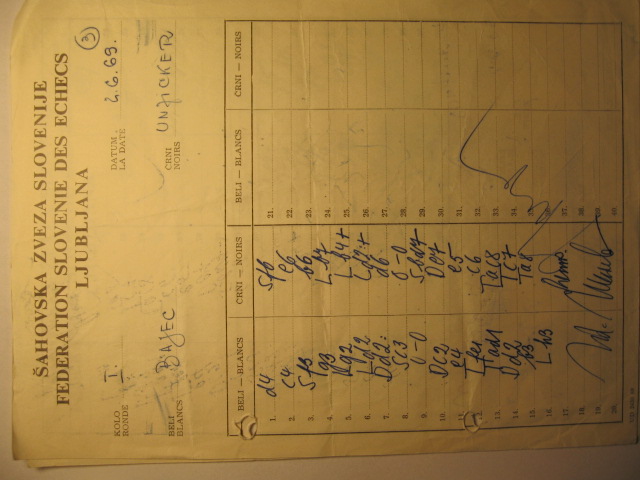 ŠAHOVSKA ZVEZA SLOVENIJE
FEDERATION SLOVENIE DES ECHECS
LJUBLJANA
3
KOLO I. DATUM 2.6.69.
RONDE LA DATE
BELI BAJEC CRNI UNZICKER
BLANCS NOIRS
BELI — BLANCS CRNI — NOIRS BELI — BLANCS CRNI — NOIRS
1. d4 Sf6 21.
2. c4 e6 22.
3. Sf3 b6 23.
4. g3 Lb7 24.
5. Lg2 Lb4+ 25.
6. Ld2 Ld2+ 26.
7. Dd2: d6 27.
8. Sc3 0-0 28.
9. 0-0 Sbd7 29.
10. Dc2 De7 30.
11. e4 e5 31.
12. Tfe1 c6 32.
13. Tad1 Tac8 33.
14. Dd2 Tc7 34.
15. b3 Ta8 35.
16. Lh3 36.
17. 37.
18. 38.
19. 39.
20. 40.